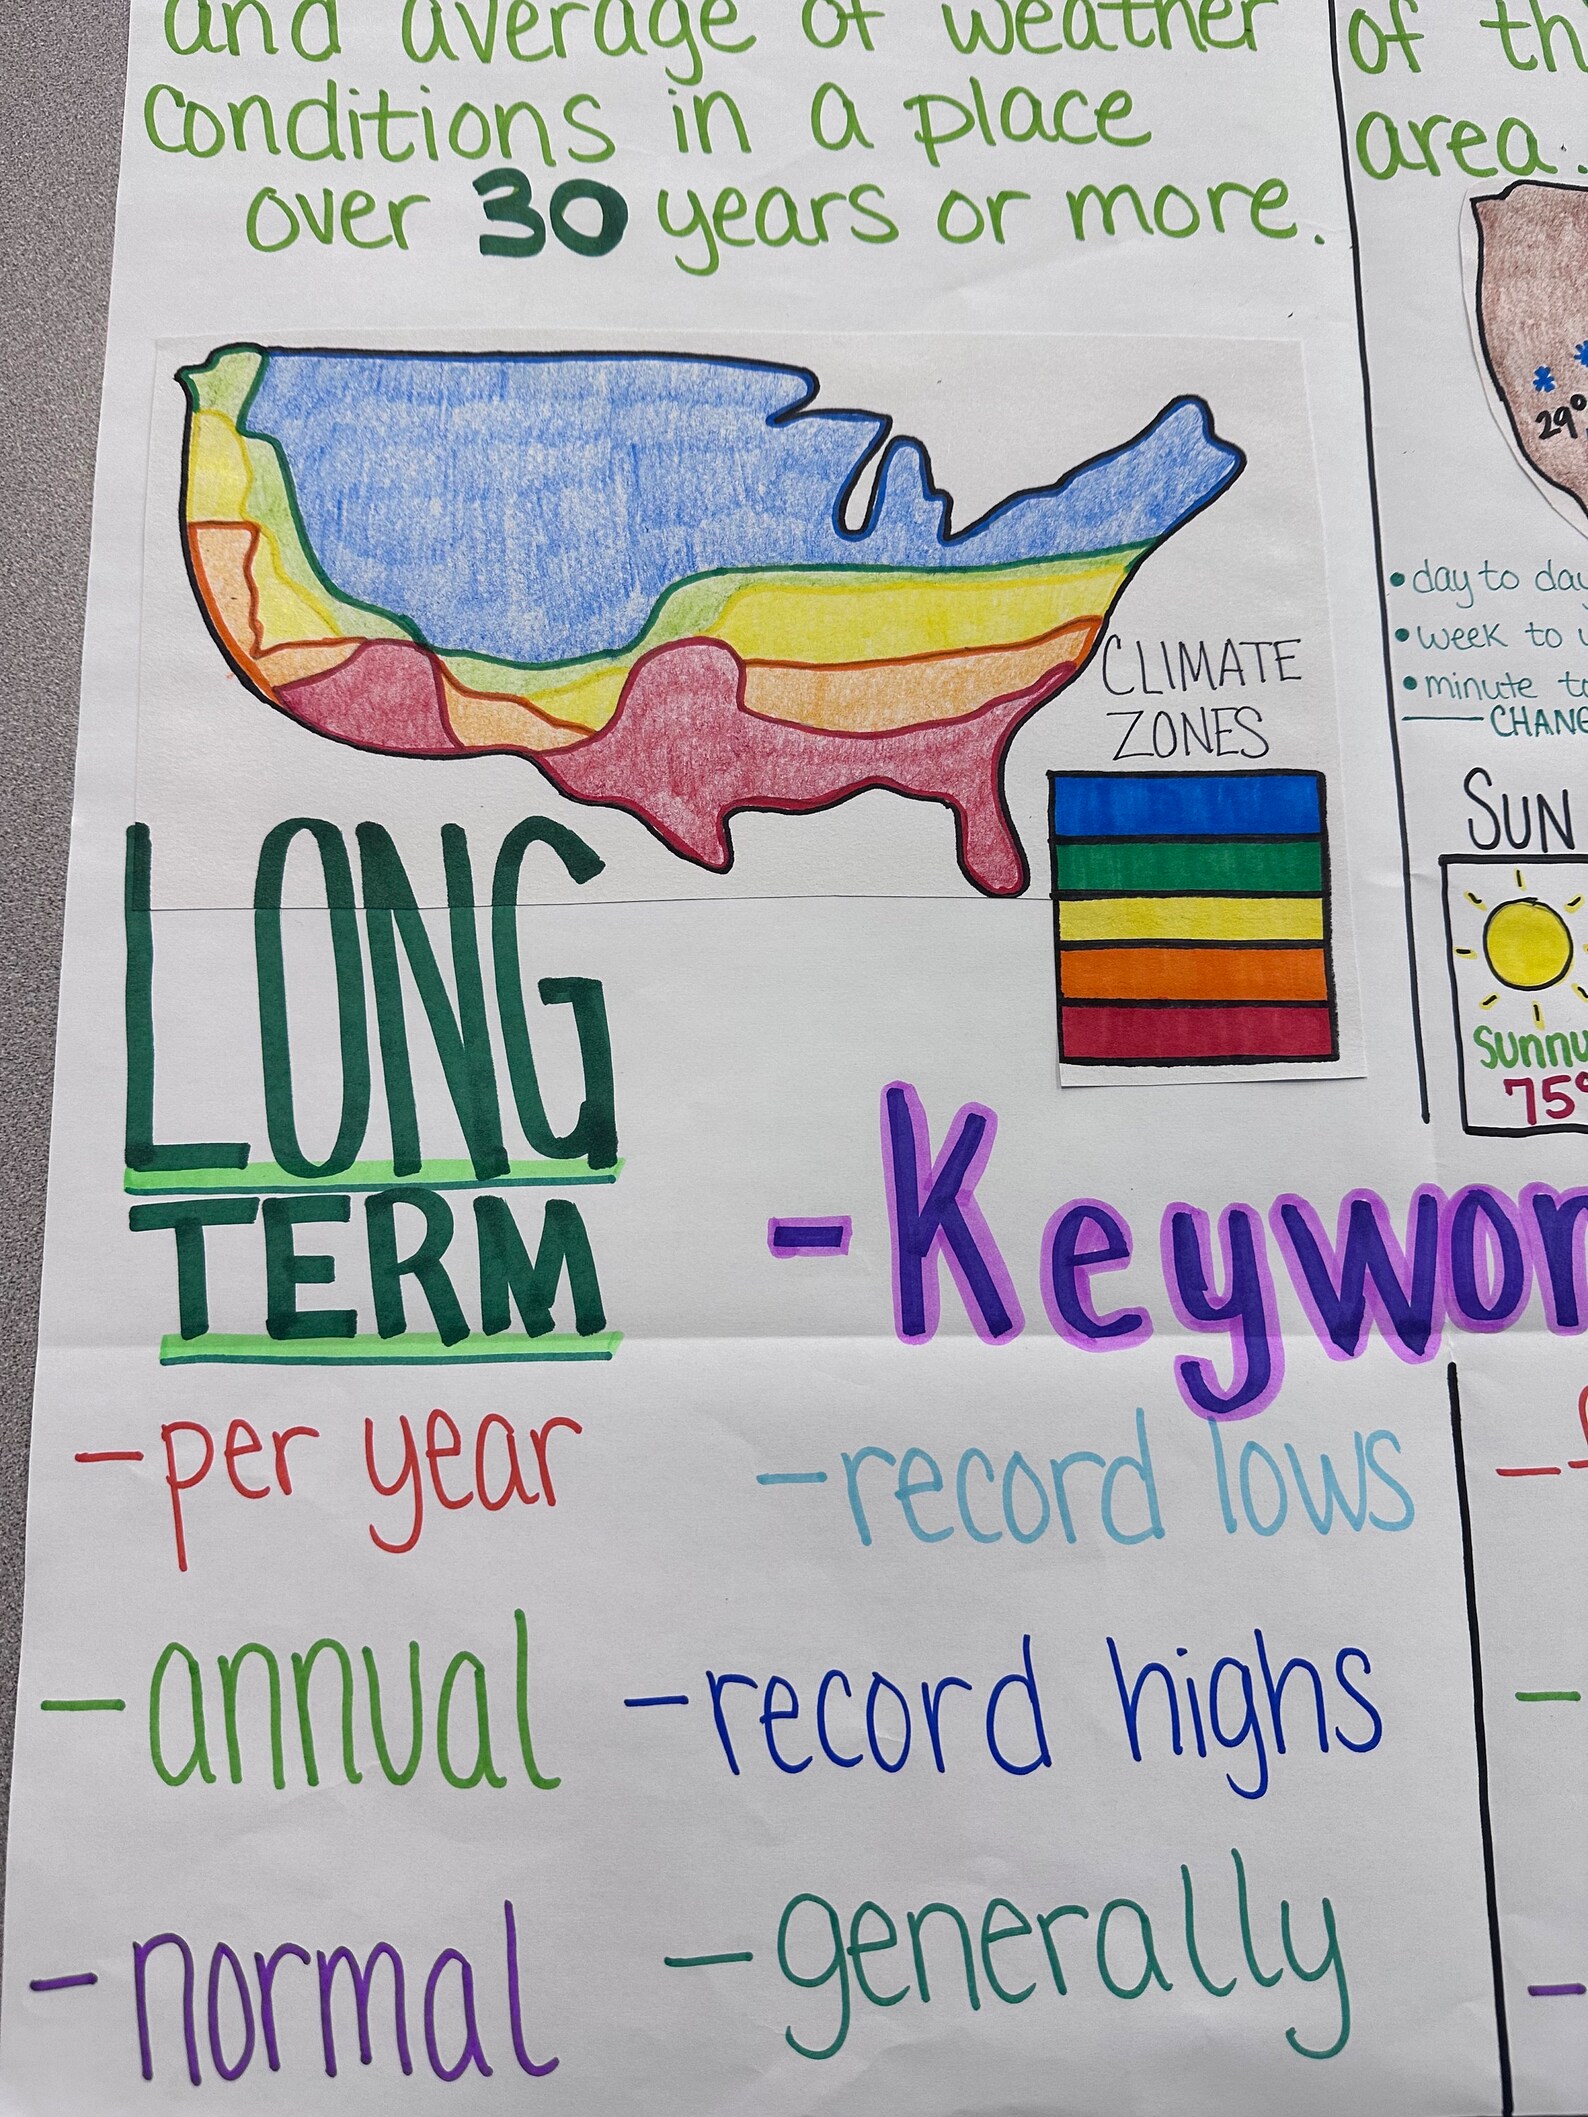 and average of weather
conditions in a place
over 30 years or more.
CLIMATE
ZONES
LONG
TERM
of
area.
29°
• day to
• week to
• minute
CHANG
SUN
Sunny
75°
-Keywor
-per year
-record lows
-annual
-record highs
-normal
-generally